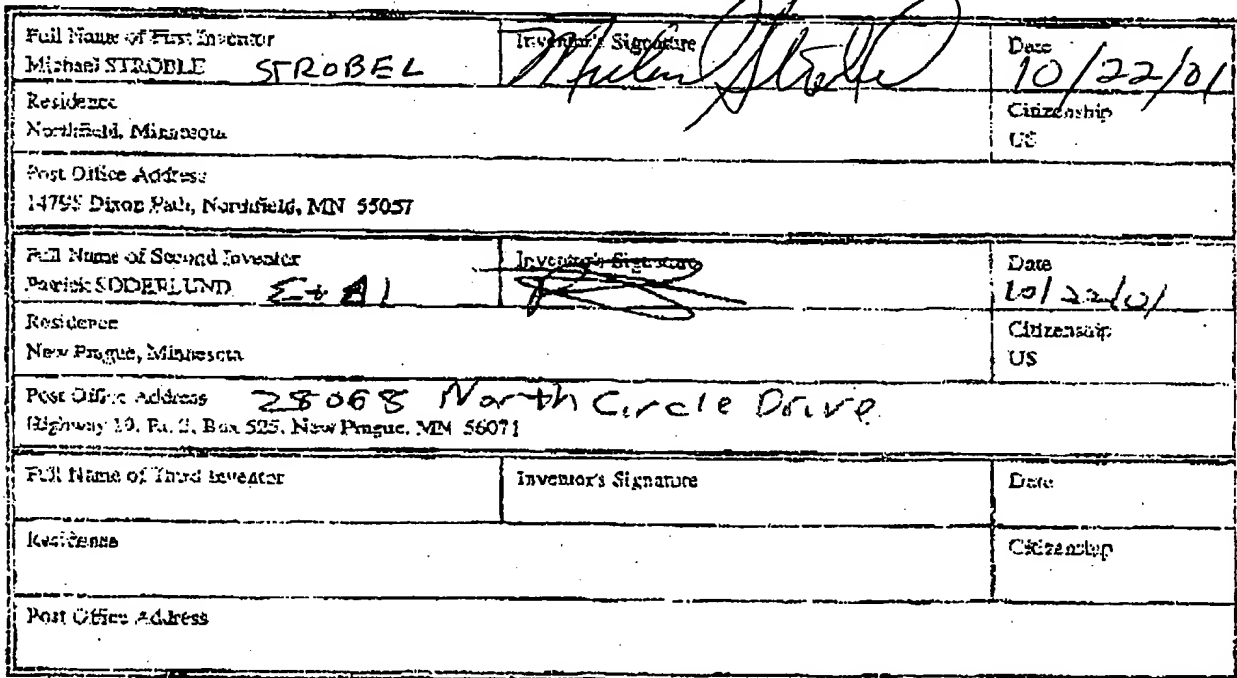 Full Name of First Inventor
Michael STROBLE STROBEL
Inventor's Signature
Michael Strobel
Date
10/22/01
Residence
Northfield, Minnesota
Citizenship
US
Post Office Address
14798 Dixon Path, Northfield, MN 55057
Full Name of Second Inventor
Patrick SODERLUND Et Al
Inventor's Signature
Date
10/22/01
Residence
New Prague, Minnesota
Citizenship
US
Post Office Address 28068 North Circle Drive
Highway 19, Rt. 2, Box 525, New Prague, MN 56071
Full Name of Third Inventor
Inventor's Signature
Date
Residence
Citizenship
Post Office Address